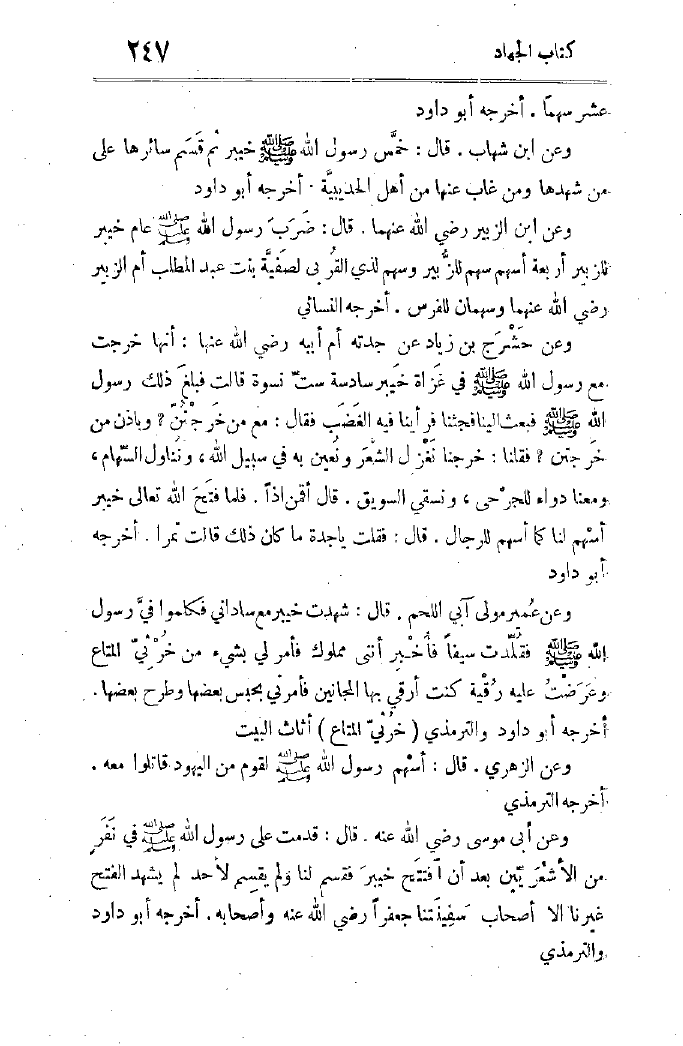 كتاب الجهاد ٢٤٧
عشر سهما . أخرجه أبو داود
وعن ابن شهاب . قال : خمَّس رسول الله ﷺ خيبر ثم قَسَم سائرها على
من شهدها ومن غاب عنها من أهل الحديبيَّة . أخرجه أبو داود
وعن ابن الزبير رضي الله عنهما . قال : ضَرَبَ رسول الله ﷺ عام خيبر
للزبير أربعة أسهم سهم للزُّبير وسهم لذي القُربى لصفيَّة بنت عبد المطلب أم الزبير
رضي الله عنهما وسهمان للفرس . أخرجه النسائي
وعن حَشْرَج بن زياد عن جدته أم أبيه رضي الله عنها : أنها خرجت
مع رسول الله ﷺ في غَزاة خَيبر سادسة ستّ نسوة قالت فبلغَ ذلك رسول
الله ﷺ فبعث الينا فجئنا فرأينا فيه الغَضَب فقال : مع من خَرَجْتُنّ ؟ وباذن من
خَرجتن ؟ فقلنا : خرجنا نَغْزِل الشعَر ونُعين به في سبيل الله ، ونُناول السّهام ،
ومعنا دواء للجرْحى ، ونسقي السويق . قال أقمن اذاً . فلما فتحَ الله تعالى خيبر
أسْهم لنا كما أسهم للرجال . قال : فقلت ياجدة ما كان ذلك قالت تمرا . أخرجه
أبو داود
وعن عُمير مولى آبي اللحم . قال : شهدت خيبر مع ساداتي فكلموا فيَّ رسول
الله ﷺ فقُلّدت سيفاً فأُخْبِر أننى مملوك فأمر لي بشيء من خُرْثيّ المتاع
وعَرَضْتُ عليه رُقْية كنت أرقي بها المجانين فأمرني بحبس بعضها وطرح بعضها .
أخرجه أبو داود والترمذي ( خرُثيّ المتاع ) أثاث البيت
وعن الزهري . قال : أسْهم رسول الله ﷺ لقوم من اليهود قاتلوا معه .
أخرجه الترمذي
وعن أبى موسى رضي الله عنه . قال : قدمت على رسول الله ﷺ في نَفَرٍ
من الأشْعَريّين بعد أن افتتح خيبرَ فقسم لنا ولم يقسِم لأحد لم يشهد الفتح
غيرنا الا أصحاب سَفِينَتنا جعفراً رضي الله عنه وأصحابه . أخرجه أبو داود
والترمذي